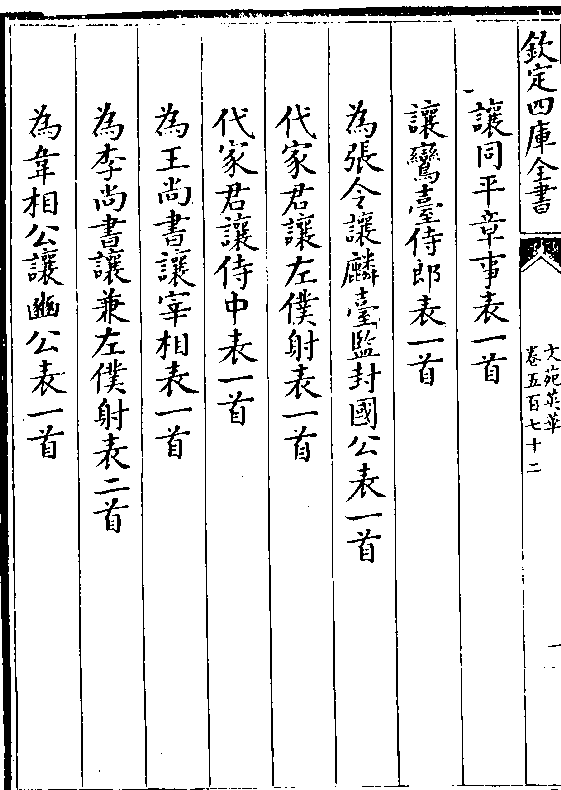 欽定四庫全書
文苑英華
卷五百七十二
一
讓同平章事表一首
讓鸞臺侍郎表一首
為張令讓麟臺監封國公表一首
代家君讓左僕射表一首
代家君讓侍中表一首
為王尚書讓宰相表一首
為李尚書讓兼左僕射表二首
為韋相公讓豳公表一首